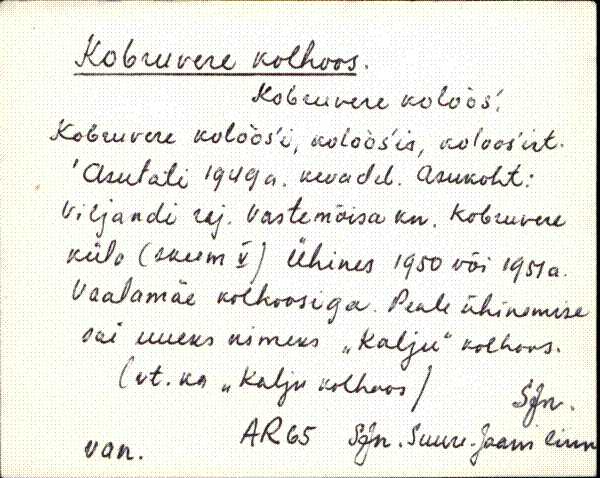 Kobruvere kolhoos.
Kobruvere kolòòs'.
Kobruvere kolòòs'i, kolòòs'is, koloos'ist.
Asutati 1949 a. kevadel. Asukoht:
Viljandi raj. Vastemõisa kn. Kobruvere
küla (skeem V) Ühines 1950 või 1951 a.
Vaalamäe kolhoosiga. Peale ühinemise
sai uueks nimeks „Kalju" kolhoos.
(vt. ka „Kalju kolhoos)
SJn.
van. AR 65 SJn. Suure-Jaani linn